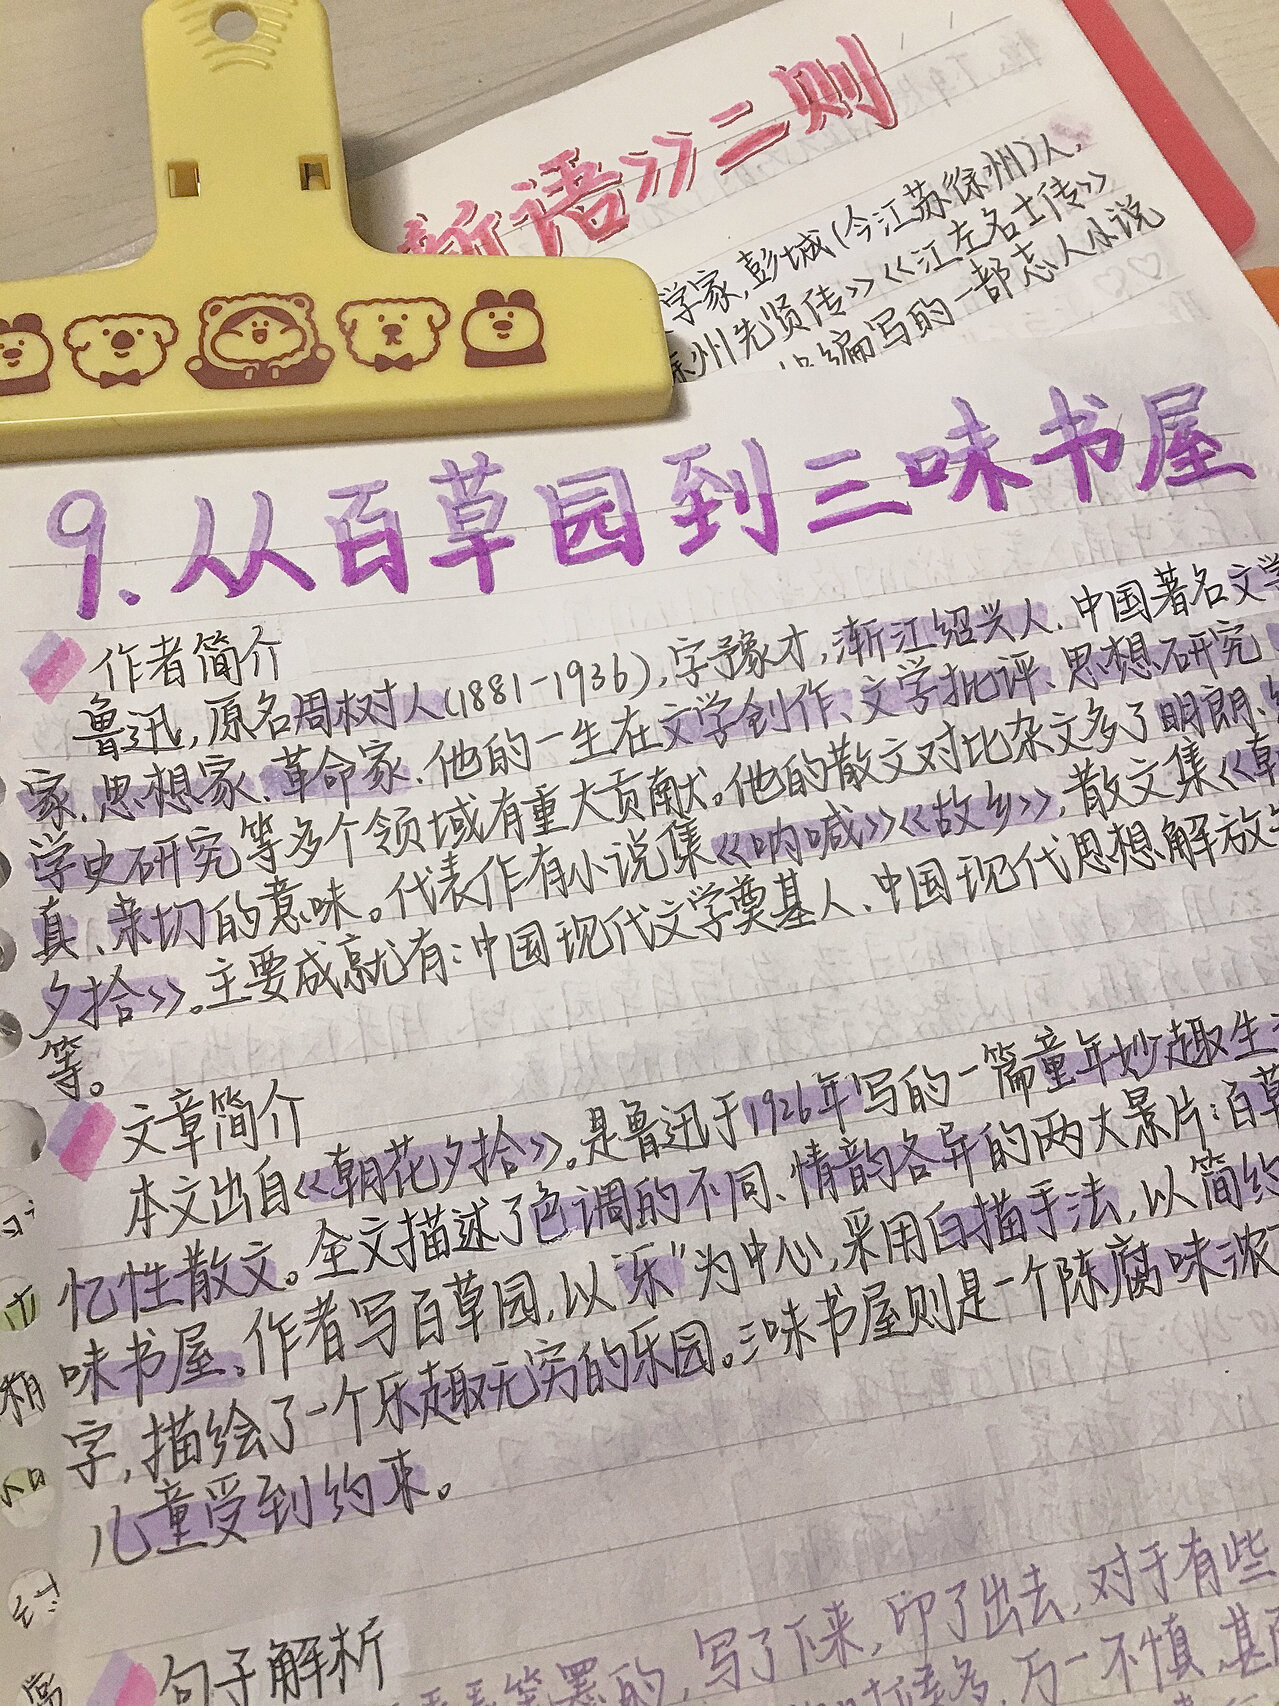 新语》二则
学家,彭城(今江苏徐州)人,
徐州先贤传》《江左名士传》
编写的一部志人小说
9.从百草园到三味书屋
作者简介
鲁迅,原名周树人(1881-1936),字豫才,浙江绍兴人.中国著名文学
家.思想家、革命家.他的一生在文学创作、文学批评、思想研究
学史研究等多个领域有重大贡献。他的散文对比杂文多了明朗、
真、亲切的意味。代表作有小说集《呐喊》《故乡》,散文集《朝
夕拾》。主要成就有:中国现代文学奠基人、中国现代思想解放
等。
文章简介
本文出自《朝花夕拾》。是鲁迅于1926年写的一篇童年妙趣生
忆性散文。全文描述了色调的不同、情韵各异的两大景片:百草
味书屋、作者写百草园,以“乐”为中心,采用白描手法,以简约
字,描绘了一个乐趣无穷的乐园。三味书屋则是一个陈腐味浓
儿童受到约束。
句子解析
笔墨的,写了下来,印了出去,对于有些
万一不慎,甚